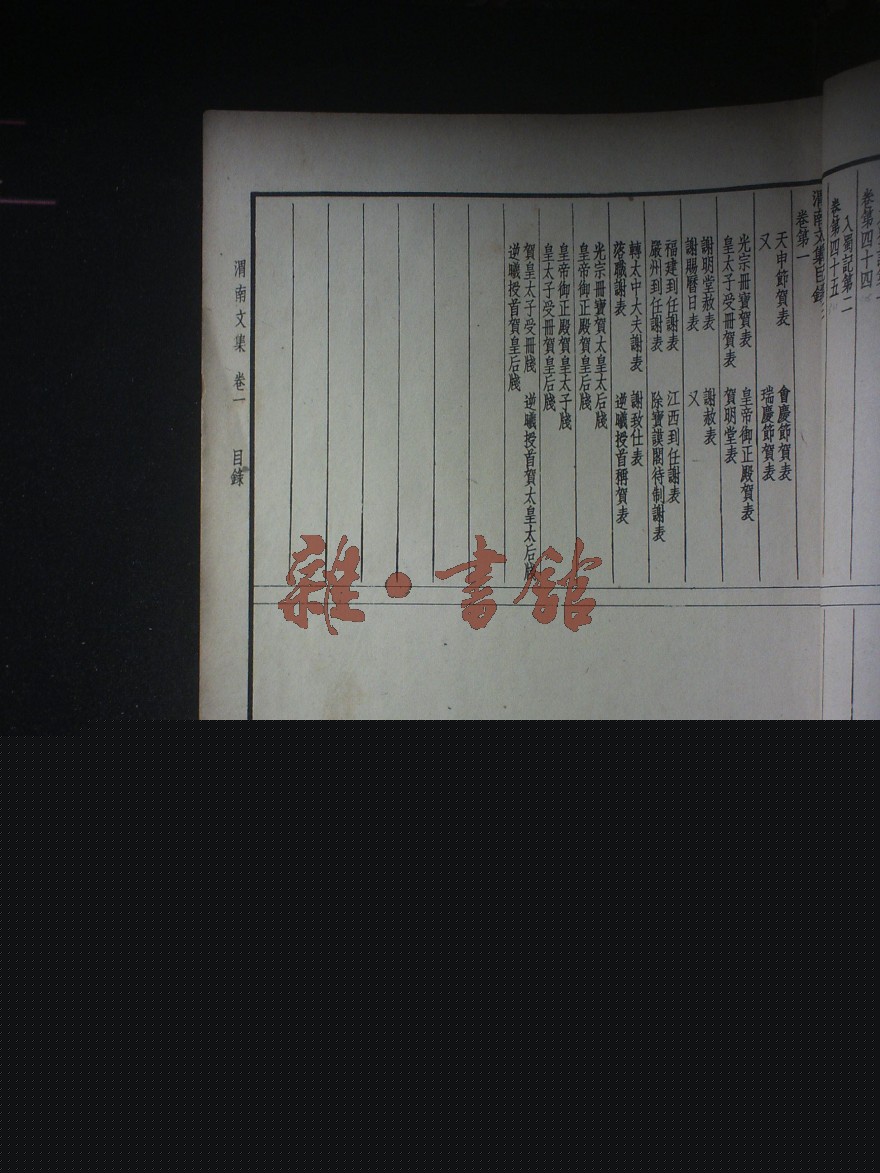 卷第四十四
入蜀記第二
卷第四十五
渭南文集目錄
卷第一
天申節賀表 會慶節賀表
又 瑞慶節賀表
光宗冊寶賀表 皇帝御正殿賀表
皇太子受冊賀表 賀明堂表
謝明堂赦表 謝赦表
謝賜曆日表 又
福建到任謝表 江西到任謝表
嚴州到任謝表 除寶謨閣待制謝表
轉太中大夫謝表 謝致仕表
落職謝表 逆曦授首稱賀表
光宗冊寶賀太皇太后牋
皇帝御正殿賀皇后牋
皇帝御正殿賀皇太子牋
皇太子受冊賀皇后牋
賀皇太子受冊牋 逆曦授首賀太皇太后牋
逆曦授首賀皇后牋
渭南文集 卷一 目錄
雜·書館